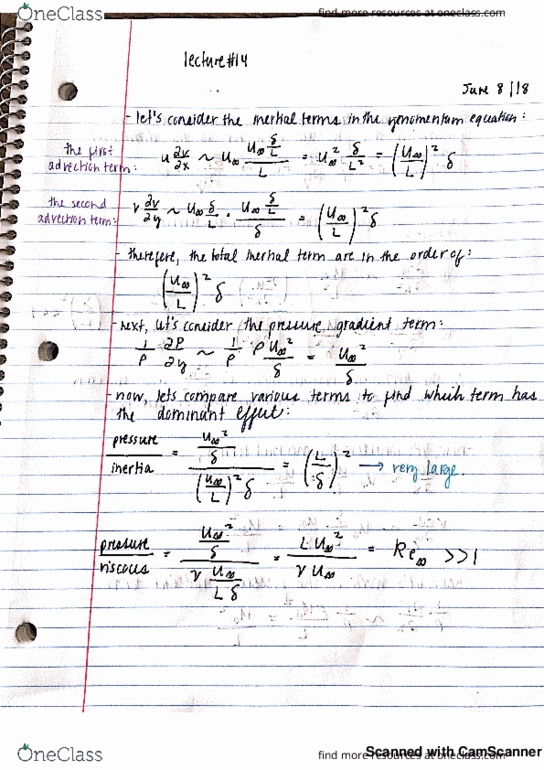 OneClass
find more resources at oneclass.com
lecture #14
June 8/18
- let's consider the inertial terms in the y-momentum equation:
the first advection term: u ∂v/∂x ~ U∞ (U∞ δ/L)/L = U∞² δ/L² = (U∞/L)² δ
the second advection term: v ∂v/∂y ~ U∞ δ/L · (U∞ δ/L)/δ = (U∞/L)² δ
- therefore, the total inertial term are in the order of:
(U∞/L)² δ
- next, let's consider the pressure gradient term:
1/ρ ∂P/∂y ~ 1/ρ ρU∞²/δ = U∞²/δ
- now, lets compare various terms to find which term has
the dominant effect:
pressure/inertia = (U∞²/δ)/((U∞/L)² δ) = (L/δ)² → very large.
pressure/viscous = (U∞²/δ)/(ν U∞/(L δ)) = L U∞²/(ν U∞) = Re∞ >>1
OneClass
find more resources at oneclass.com
Scanned with CamScanner